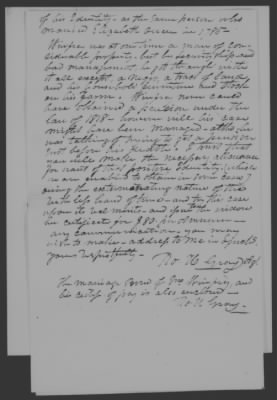 of his Identity - as the same person who
married Elizabeth Greer in 1785 -
Winfree was at one time a man of con-
siderable property - but by securityships and
bad management got through with
it all except a negro, a tract of land
and his household furniture and stock
on his farm. Winfree never could
have obtained a pension under the
law of 1818 - however well his case
might have been managed - altho he
was talking of trying to get a pension
just before his death. I trust that
you will make the necessary allowance
for want of that positive Identity which
we are enabled to obtain in some cases
giving the extenuating nature of this
with left hand of time - and try the case
upon its real merits - and send the widow
her certificate for $80 per Annum -
any communication - you may
wish to make - address to me in
yours respectfully -
the marriage Bond of Mrs Winfrey, and
his certif of pay is also enclosed -